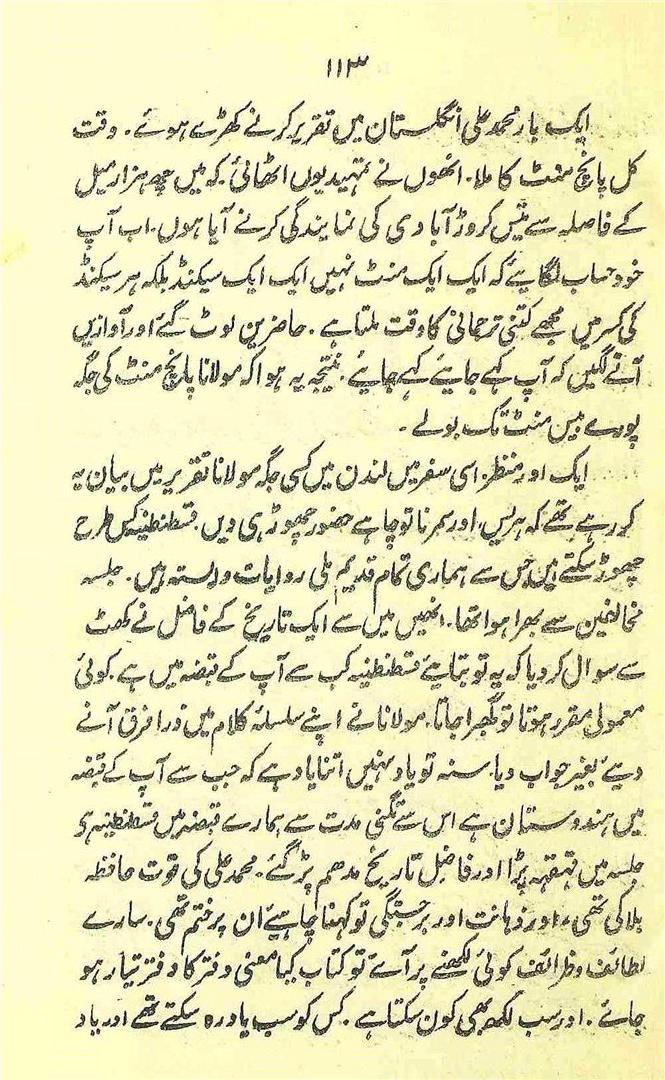 ۱۱۳
ایک بار محمد علی انگلستان میں تقریر کرنے کھڑے ہوئے۔ وقت
کل پانچ منٹ کا ملا۔ انھوں نے تمہید یوں اٹھائی۔ کہ میں چھ ہزار میل
کے فاصلہ سے تیس کروڑ آبادی کی نمایندگی کرنے آیا ہوں۔ اب آپ
خود حساب لگایئے کہ ایک ایک منٹ نہیں ایک ایک سیکنڈ بلکہ ہر سیکنڈ
کی کسر میں مجھے کتنی ترجمانی کا وقت ملتا ہے۔ حاضرین لوٹ گئے اور آوازیں
آنے لگیں کہ آپ کہے جایئے کہے جایئے۔ نتیجہ یہ ہوا کہ مولانا پانچ منٹ کی جگہ
پورے بیس منٹ تک بولے۔
ایک اور منظر۔ اسی سفر میں لندن میں کسی جگہ مولانا تقریر میں بیان یہ
کر رہے تھے کہ ہریس، اور سمرنا تو چاہے حضور چھوڑ ہی دیں۔ قسطنطنیہ کس طرح
چھوڑ سکتے ہیں جس سے ہماری تمام قدیم ملی روایات وابستہ ہیں۔ جلسہ
مخالفین سے بھرا ہوا تھا۔ انھیں میں سے ایک تاریخ کے فاضل نے کھٹ
سے سوال کر دیا کہ یہ تو بتایئے قسطنطنیہ کب سے آپ کے قبضہ میں ہے۔ کوئی
معمولی مقرر ہوتا تو گھبرا جاتا۔ مولانا نے اپنے سلسلۂ کلام میں ذرا فرق آنے
دیئے بغیر جواب دیا سنہ تو یاد نہیں اتنا یاد ہے کہ جب سے آپ کے قبضہ
میں ہندوستان ہے اس سے تگنی مدت سے ہمارے قبضہ میں قسطنطنیہ ہے
جلسہ میں قہقہہ پڑا اور فاضل تاریخ مدھم پڑ گئے۔ محمد علی کی قوت حافظہ
بلا کی تھی، اور ذہانت اور برجستگی تو کہنا چاہیئے ان پر ختم تھی۔ سارے
لطائف و ظرائف کوئی لکھنے پر آئے تو کتاب کیا معنی دفتر کا دفتر تیار ہو
جائے۔ اور سب لکھ بھی کون سکتا ہے۔ کس کو سب یاد رہ سکتے تھے اور یاد